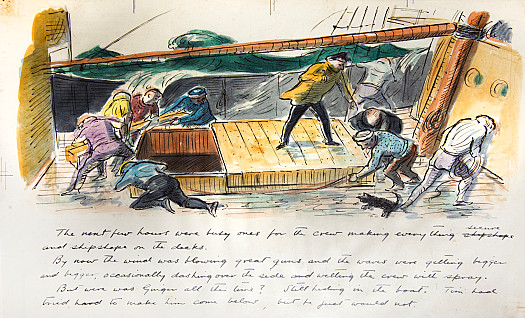 The next few hours were busy ones for the crew making everything secure shipshape
and shipshape on the decks.
By now the wind was blowing great guns and the waves were getting bigger
and bigger, occasionally dashing over the side and wetting the crew with spray.
But where was Ginger all the time? Still hiding in the boat. Tim had
tried hard to make him come below, but he just would not.